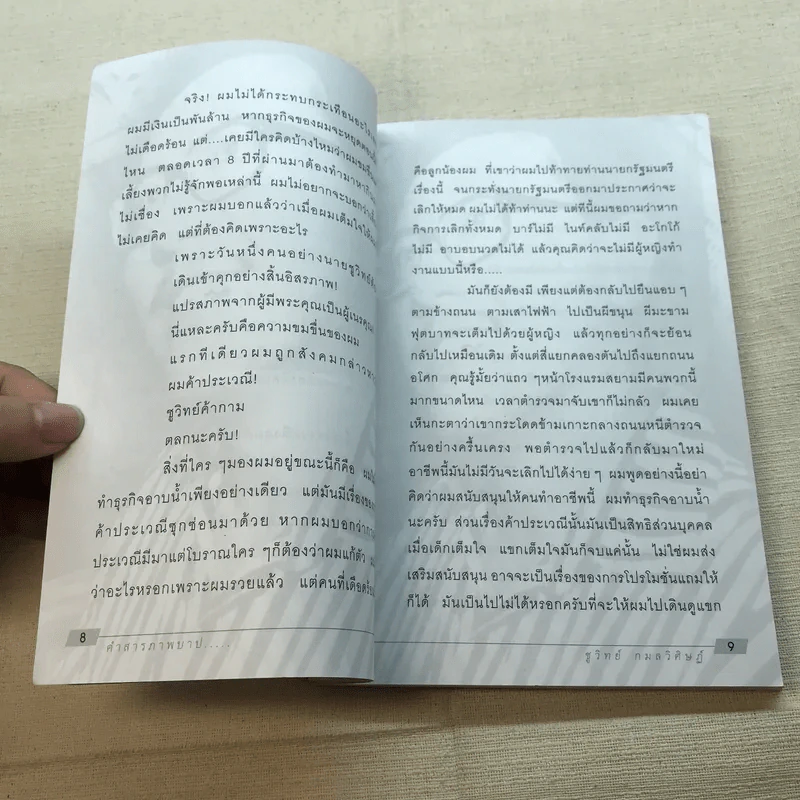 จริง! ผมไม่ได้กระทบกระเทือนอะไร
ผมมีเงินเป็นพันล้าน หากธุรกิจของผมจะหยุด
ไม่เดือดร้อน แต่....เคยมีใครคิดบ้างไหมว่าผมขมขื่น
ไหน ตลอดเวลา 8 ปีที่ผ่านมาต้องทำมาหากิน
เลี้ยงพวกไม่รู้จักพอเหล่านี้ ผมไม่อยากจะบอกว่า
ไม่เชื่อง เพราะผมบอกแล้วว่าเมื่อผมเต็มใจให้
ไม่เคยคิด แต่ที่ต้องคิดเพราะอะไร
เพราะวันหนึ่งคนอย่างนายชูวิทย์
เดินเข้าคุกอย่างสิ้นอิสรภาพ!
แปรสภาพจากผู้มีพระคุณเป็นผู้เนรคุณ
นี่แหละครับคือความขมขื่นของผม
แรกทีเดียวผมถูกสังคมกล่าวหา
ผมค้าประเวณี!
ชูวิทย์ค้ากาม
ตลกนะครับ!
สิ่งที่ใคร ๆมองผมอยู่ขณะนี้ก็คือ
ทำธุรกิจอาบน้ำเพียงอย่างเดียว แต่มันมีเรื่อง
ค้าประเวณีซุกซ่อนมาด้วย หากผมบอกว่า
ประเวณีมีมาแต่โบราณใคร ๆก็ต้องว่าผมแก้ตัว
ว่าอะไรหรอกเพราะผมรวยแล้ว แต่คนที่เดือดร้อน
8
คำสารภาพบาป.....
คือลูกน้องผม ที่เขาว่าผมไปท้าทายท่านนายกรัฐมนตรี
เรื่องนี้ จนกระทั่งนายกรัฐมนตรีออกมาประกาศว่าจะ
เลิกให้หมด ผมไม่ได้ท้าท่านนะ แต่ที่นี้ผมขอถามว่าหาก
กิจการเลิกทั้งหมด บาร์ไม่มี ไนท์คลับไม่มี อะโกโก้
ไม่มี อาบอบนวดไม่ได้ แล้วคุณคิดว่าจะไม่มีผู้หญิงทำ
งานแบบนี้หรือ.....
มันก็ยังต้องมี เพียงแต่ต้องกลับไปยืนแอบ ๆ
ตามข้างถนน ตามเสาไฟฟ้า ไปเป็นผีขนุน ผีมะขาม
ฟุตบาทจะเต็มไปด้วยผู้หญิง แล้วทุกอย่างก็จะย้อน
กลับไปเหมือนเดิม ตั้งแต่สี่แยกคลองตันไปถึงแยกถนน
อโศก คุณรู้มั้ยว่าแถว ๆหน้าโรงแรมสยามมีคนพวกนี้
มากขนาดไหน เวลาตำรวจมาจับเขาก็ไม่กลัว ผมเคย
เห็นกะตาว่าเขากระโดดข้ามเกาะกลางถนนหนีตำรวจ
กันอย่างครื้นเครง พอตำรวจไปแล้วก็กลับมาใหม่
อาชีพนี้มันไม่มีวันจะเลิกไปได้ง่าย ๆ ผมพูดอย่างนี้อย่า
คิดว่าผมสนับสนุนให้คนทำอาชีพนี้ ผมทำธุรกิจอาบน้ำ
นะครับ ส่วนเรื่องค้าประเวณีนั้นมันเป็นสิทธิส่วนบุคคล
เมื่อเด็กเต็มใจ แขกเต็มใจมันก็จบแค่นั้น ไม่ใช่ผมส่ง
เสริมสนับสนุน อาจจะเป็นเรื่องของการโปรโมชั่นแถมให้
ก็ได้ มันเป็นไปไม่ได้หรอกครับที่จะให้ผมไปเดินดูแขก
ชูวิทย์ กมลวิศิษฎ์
9